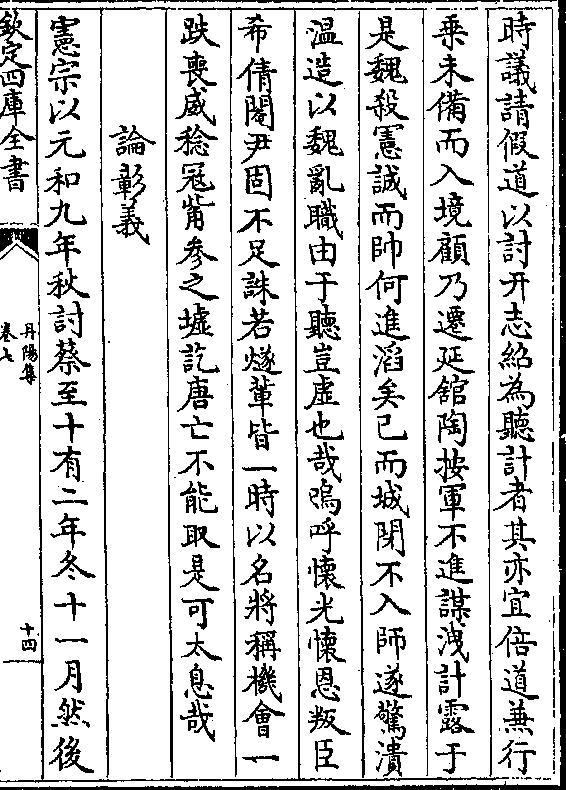 時議請假道以討幵志紹為聽計者其亦宜倍道兼行
乘未備而入境顧乃遷延舘陶按軍不進謀洩計露于
是魏殺憲誠而帥何進滔矣已而城閉不入師遂驚潰
溫造以魏亂職由于聽豈虛也哉嗚呼懷光懷恩叛臣
希倩閺尹固不足誅若燧軰皆一時以名將稱機會一
跌喪威稔冦觜參之墟訖唐亡不能取是可太息哉
論彰義
憲宗以元和九年秋討蔡至十有二年冬十一月然後
欽定四庫全書
丹陽集
卷七
十四